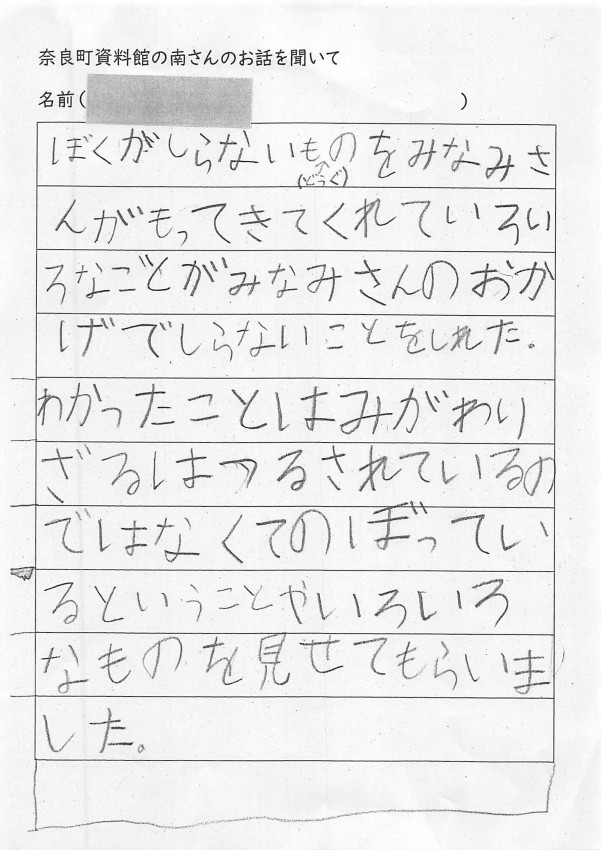 奈良町資料館の南さんのお話を聞いて
名前( )
ぼくがしらないものをみなみさ
(どうぐ)
んがもってきてくれていろい
ろなごとがみなみさんのおか
げでしらないことをしれた。
わかったことはみがわり
ざるはつるされているの
ではなくてのぼってい
るということやいろいろ
なものを見せてもらいま
した。